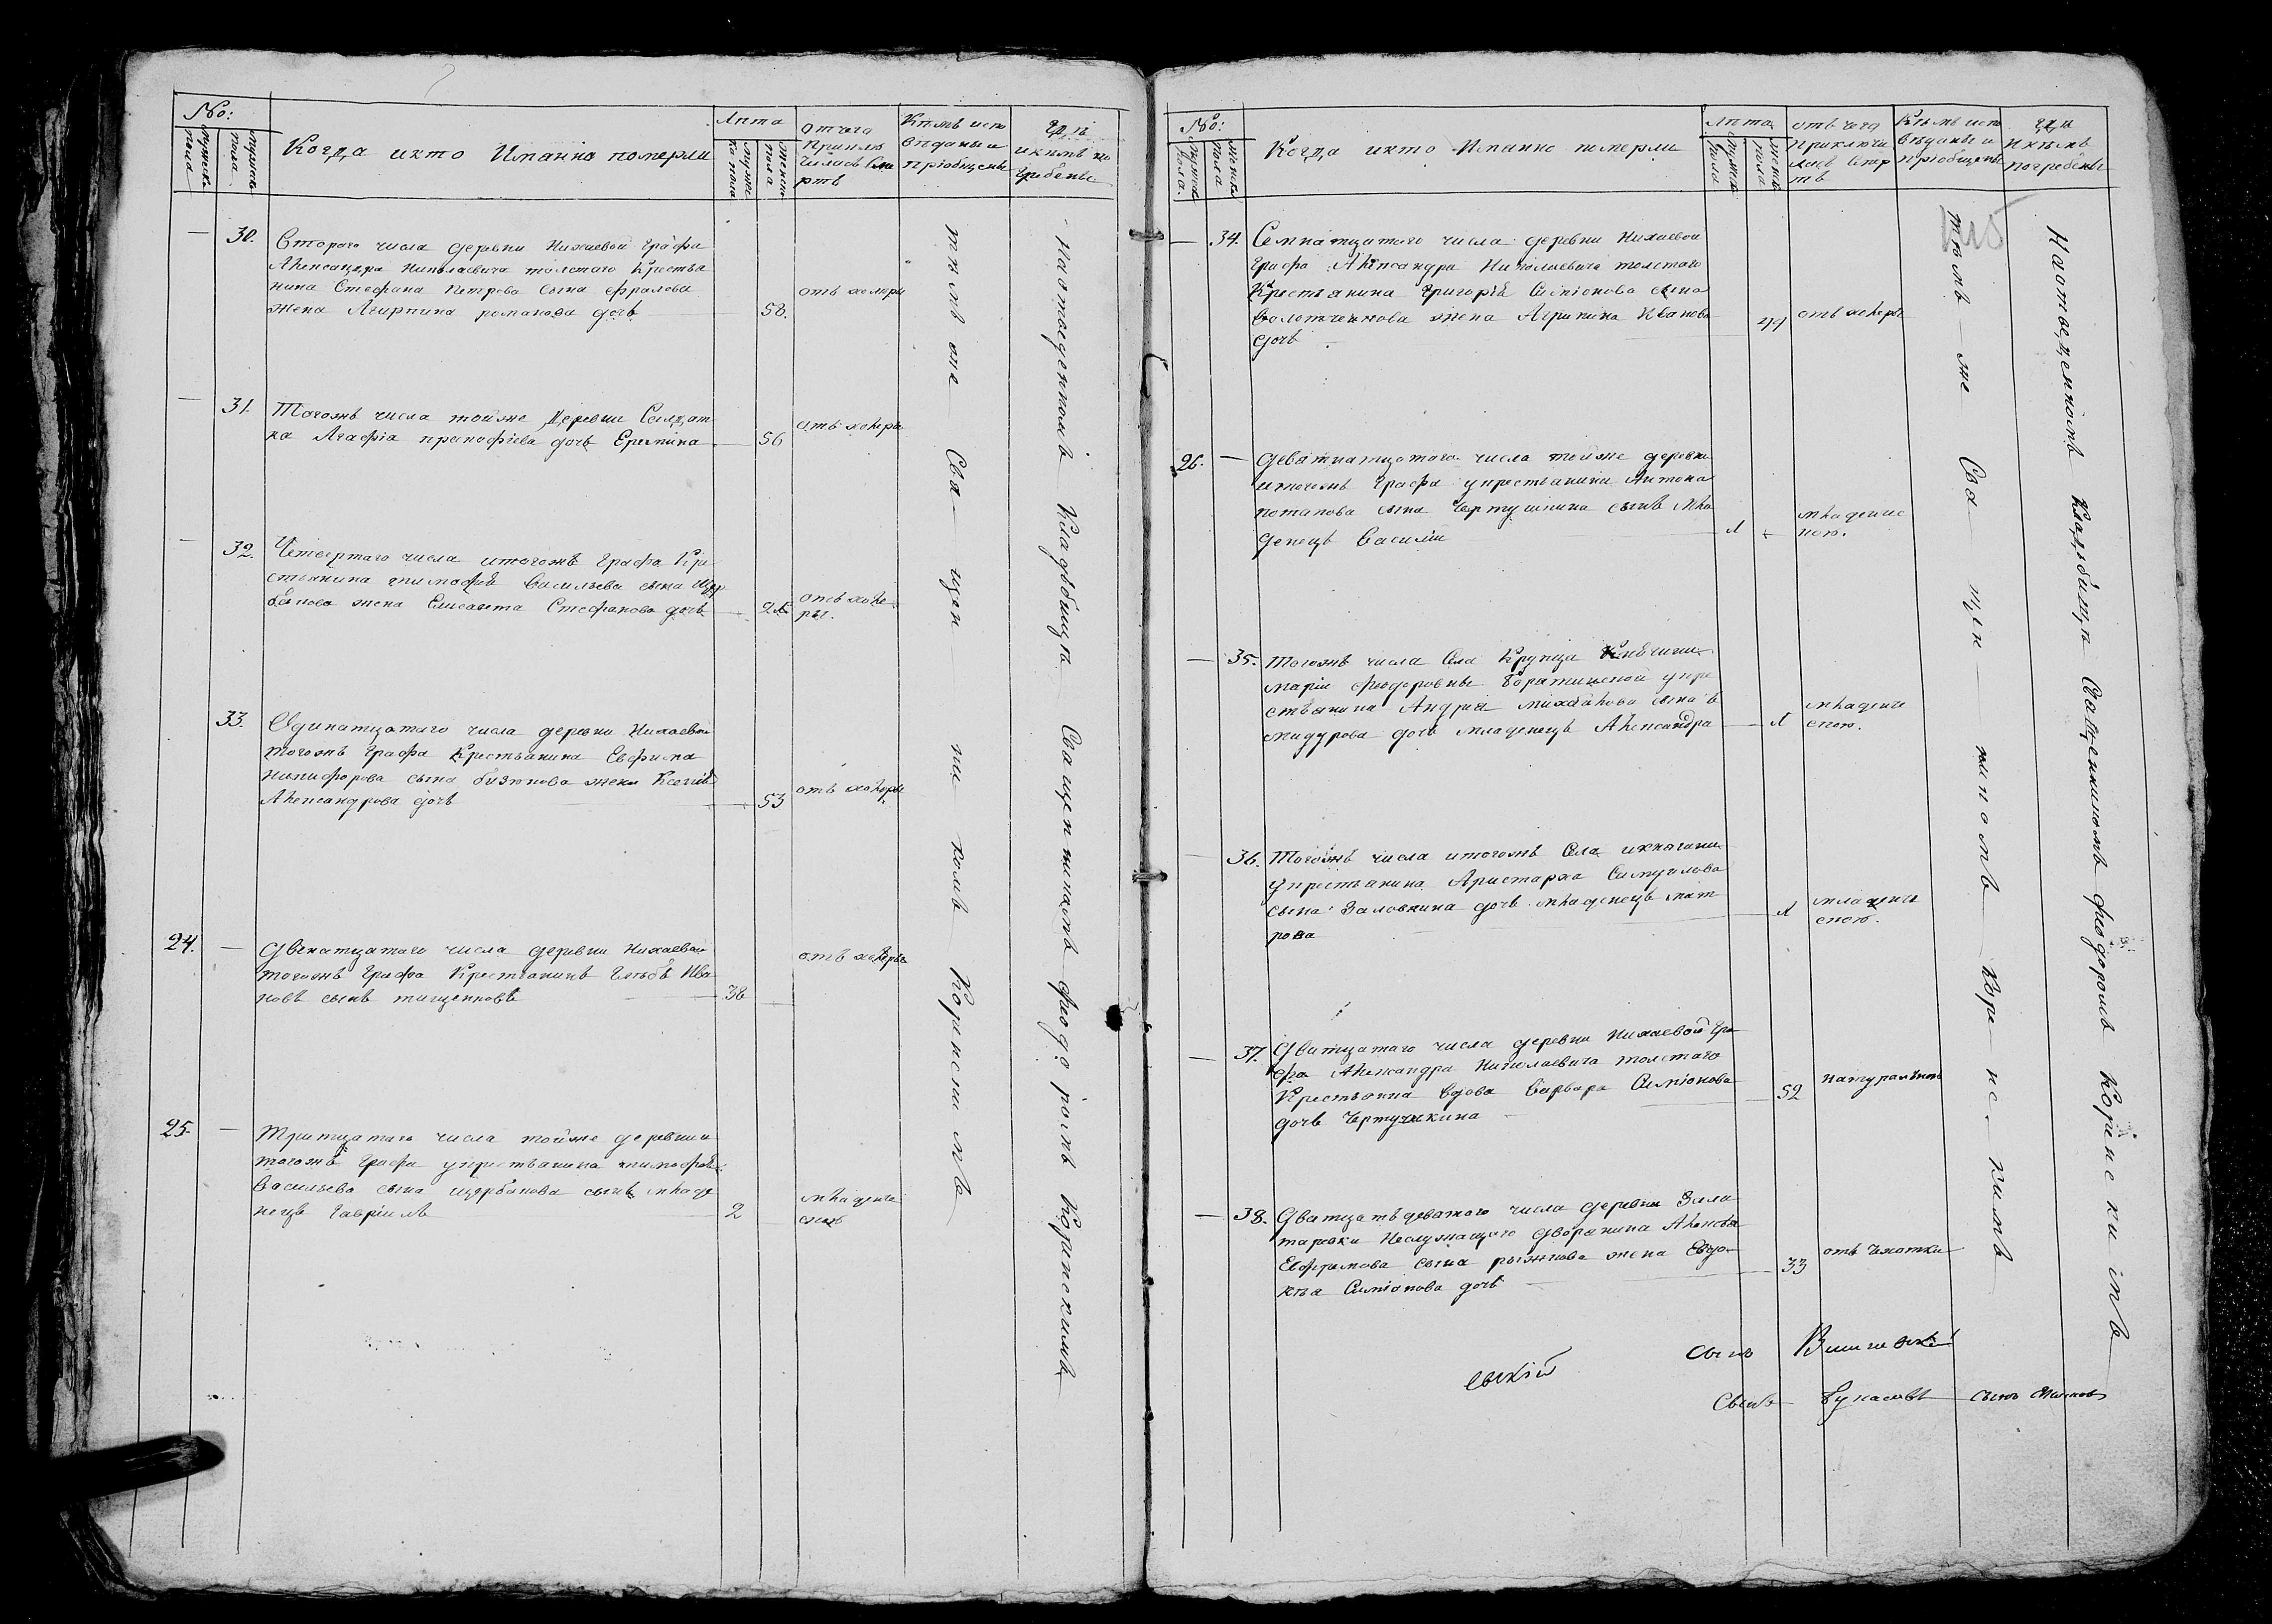 №:
мужеска пола
Когда икто Имянно померли
Лѣта
мужес
ка пола
женска
пола
Отчего
Приклю
чилась Сме
рть
Кѣмъ испо
вѣданы и
приобщены
Гдѣ
икѣмъ по
гребены
30.
Втораго числа деревни Нихаевой Графа
Александра Николаевича толстаго Крестья
нина Стефана Петрова сына фралова
жена Агирпина романова дочь
58.
отъ холеры
31.
Тогожъ числа тойже Деревни Салдат
ка Агафіа пракофіева дочь Еремина
56
отъ холеры
32.
Четвертаго числа итогожъ Графа Кре
стьянина тимофѣя Васильева сына Щер
бакова жена Елисавета Стефанова дочь
отъ холе
ры.
33.
Одинатцатаго числа деревни Нихаевой
тогожъ Графа Крестьянина Евфима
никифорова сына бизюкова жена Ксеніа
Александрова дочь
53
отъ холеры
24.
Двенатцатаго числа деревни Нихаевой
тогожъ Графа Крестьянинъ Глѣбъ Ива
новъ сынъ тищенковъ
38
отъ холеры
25.
Тритцатаго числа тойже деревни и
тогожъ Графа укрестьянина тимофѣя
Васильева сына щербакова сынъ младе
нецъ Гавріилъ
2
младенче
ской
тѣмъ же Свя щен ни комъ Коренскимъ
На отведенномъ Кладбищѣ Священникомъ феодоромъ Коренскимъ
№:
мужска
пола.
женска
пола
Когда икто Имянно померли
Лѣта
мужска
пола
женска
пола
отъ чего
приключи
лась Смер
ть
Кѣмъ испо
вѣданы и
приобщены
гдѣ
Икѣмъ
погребены
34.
Семнатцатаго числа деревни Нихаевой
Графа Александра Николаевича толстаго
Крестьянина Григоріа Симіонова сына
Болотченкова жена Агрипина Иванова
дочь
49
отъ холеры
26.
Девятнатцатаго числа тойже деревни
итогожъ Графа укрестьянина Антона
потапова сына Чертушкина сынъ Мла
денецъ Василій
1
младенче
ской.
35.
Тогожъ числа Села Крупца Княгини
маріи феодоровны Барятинской укре
стьянина Андрея михайлова сына
мидурова дочь младенецъ Александра
1
младенче
ской.
36.
Тогожъ числа итогожъ Села икнягини
укрестьянина Аристарха Самуилова
сына Заловкина дочь младенецъ мат
рона
1
младенче
ской.
37.
Дватцатаго числа деревни Нихаевой Гра
фа Александра Николаевича толстаго
Крестьянина вдова Варвара Симіонова
дочь Чертушкина
52
натуральной
38.
Дватцать деватаго числа деревни Зала
таревки Неслужащаго дворянина Алексѣя
Ефремова сына рыжкова жена Евдо
кѣа Симіонова дочь
33
отъ чахотки
тѣмъ же Свя щен никомъ Коренскимъ
На отведенномъ Кладбищѣ Священникомъ феодоромъ Коренскимъ